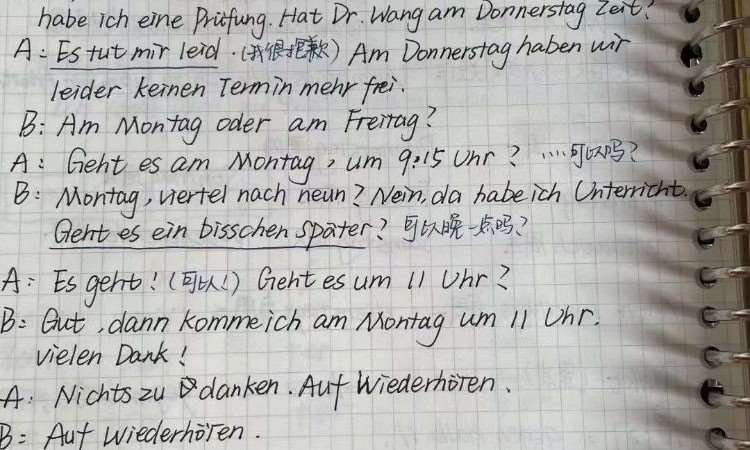 habe ich eine Prüfung. Hat Dr. Wang am Donnerstag Zeit?
A: Es tut mir leid. (我很抱歉) Am Donnerstag haben wir
leider keinen Termin mehr frei.
B: Am Montag oder am Freitag?
A: Geht es am Montag, um 9:15 Uhr? ....可以吗?
B: Montag, viertel nach neun? Nein, da habe ich Unterricht.
Geht es ein bisschen später? 可以晚一点吗?
A: Es geht! (可以!) Geht es um 11 Uhr?
B: Gut, dann komme ich am Montag um 11 Uhr.
vielen Dank!
A: Nichts zu danken. Auf Wiederhören.
B: Auf Wiederhören.